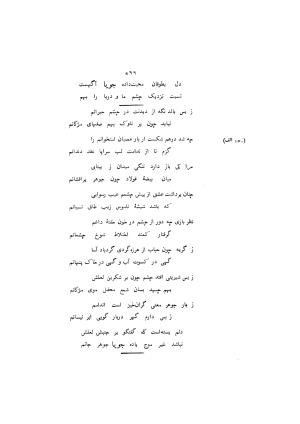 ۵۶۶
دل بطوفان محبت‌داده جویا اگیست
نسبت نزدیک چشم ما و دریا را بهم
ز بس باشد نگه از دیدنت در چشم حیرانم
نیاید چون بر ناوک بهم صفهای مژگانم
چه شد درهم شکست از بار عصیان استخوانم را (ص، الف)
گزم تا از ندامت لب سراپا عقد دندانم
مرا کی باز دارد تنگی میدان ز بیتابی
میان بیضهٔ فولاد چون جوهر پرافشانم
چنان برداشت عشق از پیش چشمم عیب رسوایی
که باشد شیشهٔ ناموس زیب طاق نسیانم
نظر بازی چه دور از چشم در خون طپنده دلم
گرفتار کمند اختلاط شوخ چشمانم
ز گریه چون حباب از هرزه‌گردی گردباد آسا
گهی در کسوت آب و گهی در خاک پنهانم
ز بس شیرینی افتد چشم چون بر شکرین لعلش
بهم چسپید بسان شمع محفل موی مژگانم
ز بار جوهر معنی گران‌خیز است اندامم
ز بس دارم گهر دربار گویی ابر نیسانم
دلم بسته‌است که گفتگو بر جنبش لعلش
نباشد غیر موج باده جویا جوهر جانم